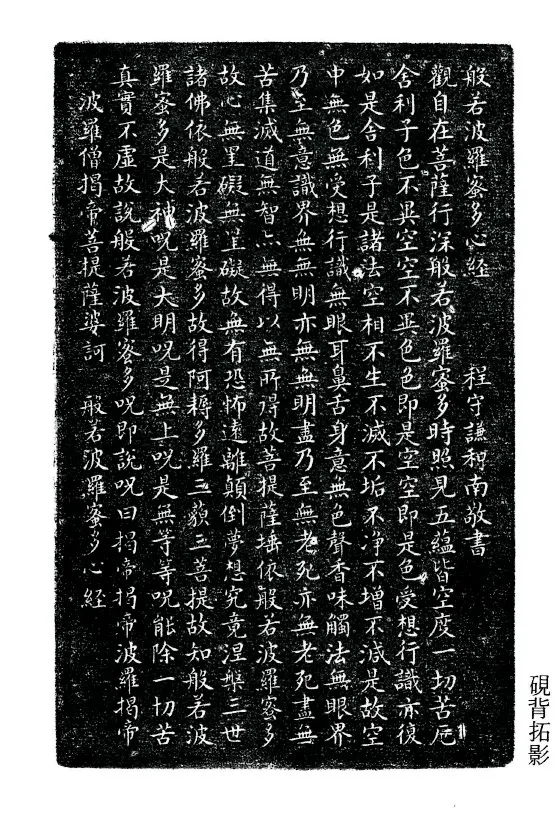 般若波羅蜜多心經　程守謙和南敬書
觀自在菩薩行深般若波羅蜜多時照見五蘊皆空度一切苦厄
舍利子色不異空空不異色色即是空空即是色受想行識亦復
如是舍利子是諸法空相不生不滅不垢不净不增不減是故空
中無色無受想行識無眼耳鼻舌身意無色聲香味觸法無眼界
乃至無意識界無無明亦無無明盡乃至無老死亦無老死盡無
苦集滅道無智亦無得以無所得故菩提薩埵依般若波羅蜜多
故心無罣礙無罣礙故無有恐怖遠離顛倒夢想究竟涅槃三世
諸佛依般若波羅蜜多故得阿耨多羅三藐三菩提故知般若波
羅蜜多是大神呪是大明呪是無上呪是無等等呪能除一切苦
真實不虛故說般若波羅蜜多呪即說呪曰揭帝揭帝波羅揭帝
波羅僧揭帝菩提薩婆訶　般若波羅蜜多心經
硯背拓影